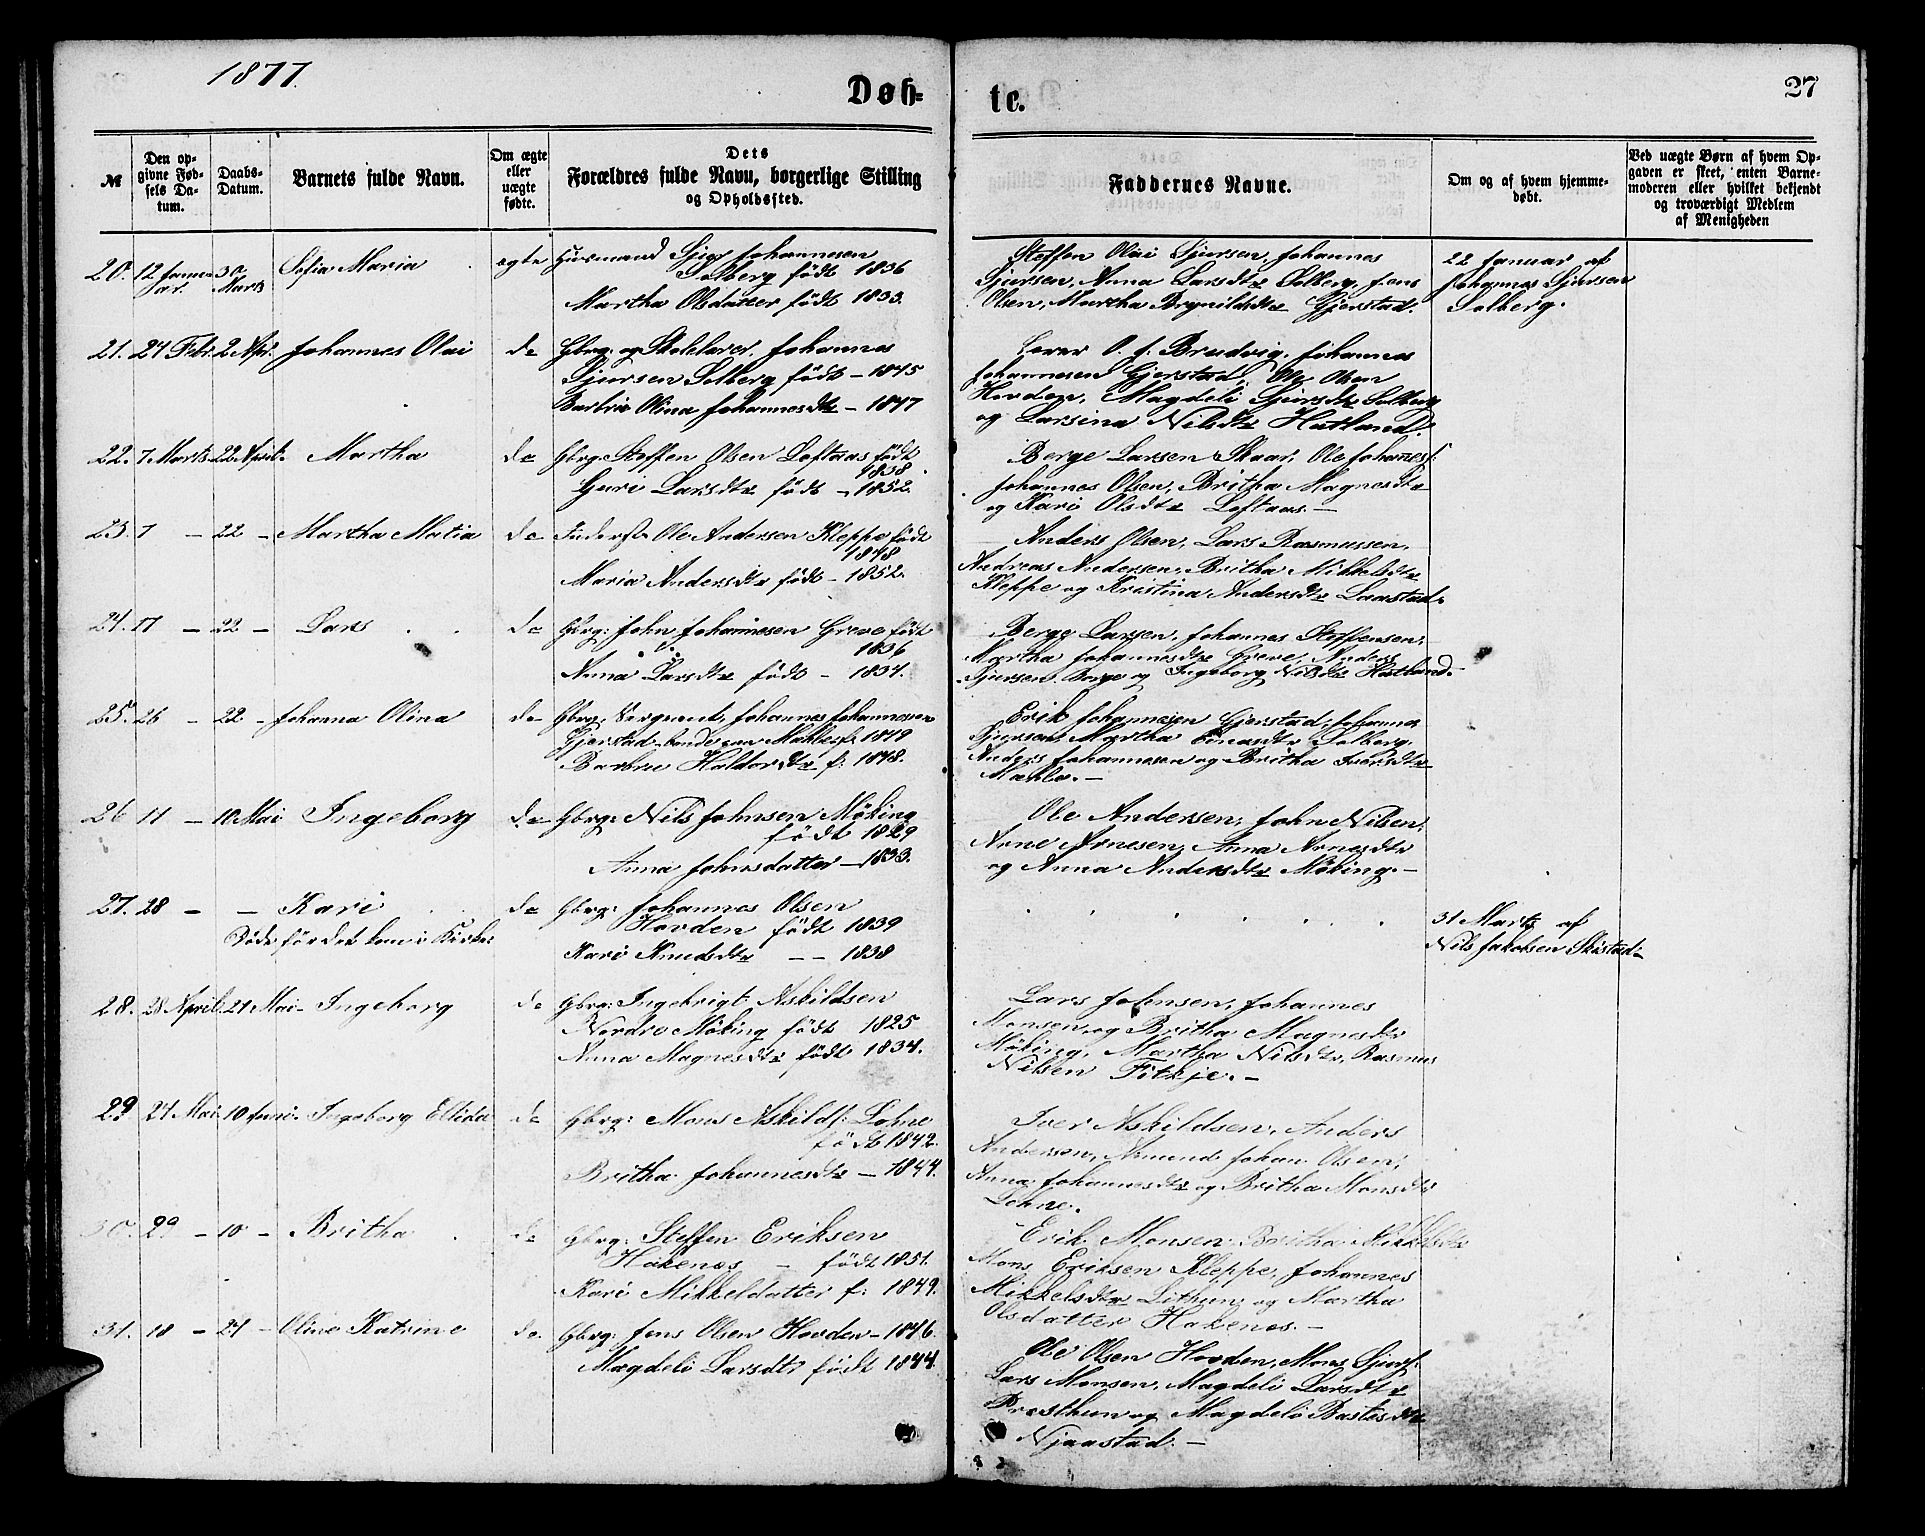 1877.
Døb-
te.
27
№
Den op-
givne Fød-
sels Da-
tum.
Daabs-
Datum.
Barnets fulde Navn.
Om ægte
eller
uægte
fødte.
Dets
Forældres fulde Navn, borgerlige Stilling
og Opholdssted.
Faddernes Navne.
Om og af hvem hjemme-
døbt.
Ved uægte Børn af hvem Op-
gaven er skeet, enten Barne-
moderen eller hvilket bekjendt
og troværdigt Medlem
af Menigheden
20. 12 Janu-
ar. 30
Marts Sofia Maria ægte Husmand Sjur Johannesen
Solberg født 1836
Martha Olsdatter født 1833.
Steffen Olai Sjursen, Johannes
Sjursen, Anna Larsdtr Solberg, Jens
Olsen, Martha Brynildsdtr Gjerstad.
22 Januar af
Johannes Sjursen
Solberg.
21. 24 Febr. 2 Apr. Johannes Olai do Gbrg. og Skolelærer Johannes
Sjursen Solberg født - 1845
Barbra Olina Johannesdtr - 1847
Lærer O. J. Brudvig, Johannes
Johannesen Gjerstad, Ole Olsen
Hovden, Magdeli Sjursdtr Solberg
og Larsina Nilsdtr Hatland.
22. 7 Marts 22 April. Martha do Gbrg. Steffen Olsen Loftaas født
1838.
Guri Larsdtr født - 1852.
Berge Larsen Skaar, Ole Johanness:
Johannes Olsen, Britha Magnesdtr
og Kari Olsdtr Loftaas. -
23. 7 - 22 - Martha Matia do Inderst Ole Andersen Kleppe født
1848
Maria Andersdtr født - 1852.
Anders Olsen, Lars Rasmussen,
Andreas Andersen, Britha Mikkelsdtr
Kleppe og Kristina Andersdtr Laastad.
24. 17 - 22 - Lars do Gbrg: John Johannesen Greve født
1836
Anna Larsdtr født - 1834.
Berge Larsen, Johannes Steffensen,
Martha Johannesdtr Greve, Anders
Sjursen Berge og Ingeborg Nilsdtr Hatland.
25. 26 - 22 - Johanna Olina do Gbrg, Sergeant, Johannes Johannesen
Gjerstad f: 1849
Barbra Haldorsdtr f: 1848.
Erik Johannesen Gjerstad, Johannes
Sjursen, Martha Solberg,
Anders Johannesen og Britha Iversdtr
Mæhle. -
26 11 - 10 Mai Ingeborg do Gbrg: Nils Johnsen Møking
født 1829
Anna Johnsdatter - 1833.
Ole Andersen, John Nilsen,
Arne Arnesen, Anna Arnesdtr
og Anna Andersdtr Møking. -
27. 28 - - Kari do Gbrg: Johannes Olsen
Døde før det kom i Kirke: Hovden født 1839
Kari Knudsdtr - - 1838
31 Marts af
Nils Jakobsen Skistad -
28. 28 April 21 Mai - Ingeborg do Gbrg: Ingebrigt Askildsen
Nordre Møking født 1825
Anna Magnesdtr født 1834.
Lars Johnsen, Johannes
Monsen og Britha Magnesdtr
Møking, Martha Nilsdtr, Rasmus
Nilsen Fitkje. -
29 24 Mai 10 Juni. Ingeborg Ellida do Gbrg: Mons Askilds: Løhne
født 1842.
Britha Johannesdtr - 1844.
Iver Askildsen, Anders
Andersen, Amund Johan Olsen,
Anna Johannesdtr og Britha Monsdtr
Løhne.
30. 29 - 10 - Britha do Gbrg: Steffen Eriksen
Hakenes - født 1851.
Kari Mikkeldatter f: 1849.
Erik Monsen, Britha Mikkelsdtr
Mons Eriksen Kleppe, Johannes
Mikkelsdtr Lithun og Martha
Olsdatter Hakenes. -
31. 18 - 24 - Oline Katrine do. Gbrg: Jens Olsen Hovden - 1846.
Magdeli Larsdtr født 1844.
Ole Olsen Hovden, Mons Sjurs:
Lars Monsen, Magdeli Larsdtr
Presthun og Magdeli Bastesdtr
Njaastad. -